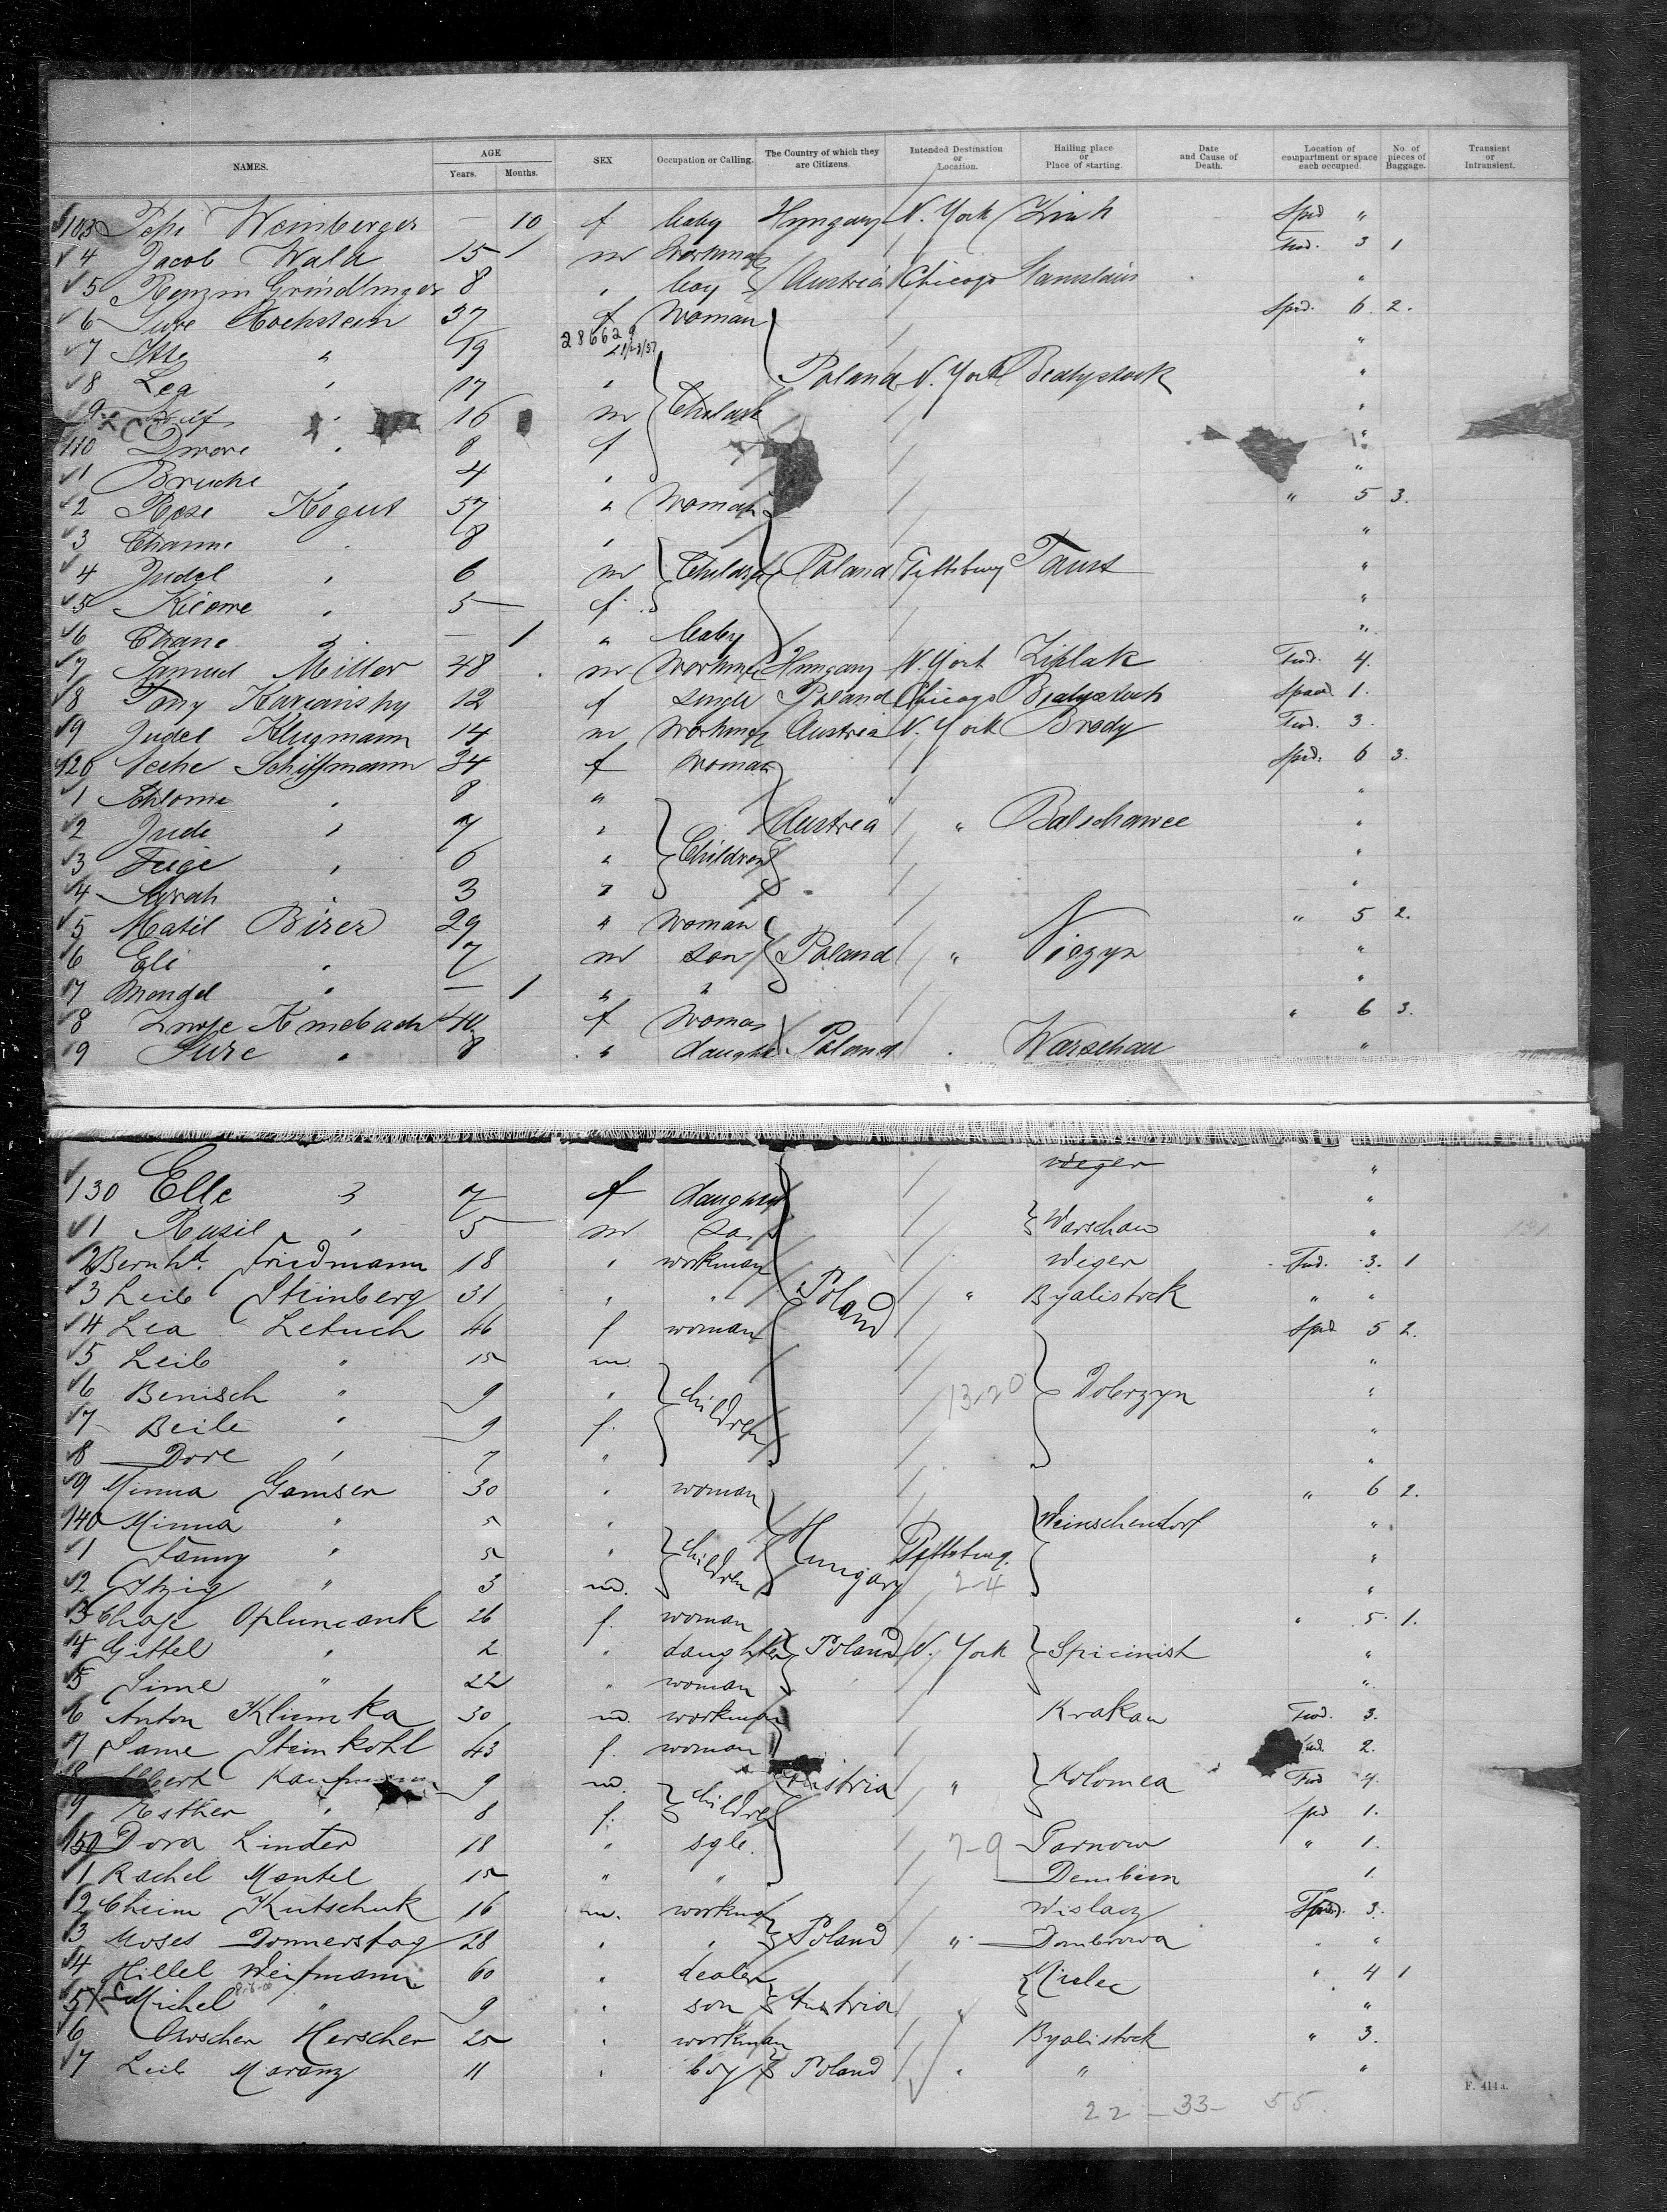 NAMES. AGE Years. Months. SEX Occupation or Calling. The Country of which they are Citizens. Intended Destination or Location. Hailing place or Place of starting. Date and Cause of Death. Location of compartment or space each occupied. No. of pieces of Baggage. Transient or Intransient.
103 Pepi Weinberger — 10 f baby Hungary N. York Sprd "
4 Jacob Wald 15 m Workman 3 1
5 Grindlinger 8 " boy Austria Chicago Stanislau "
6 Sure Hochstein 37 f Woman Sprd. 6. 2.
7 Itte " 19 286629 "
8 Lea " 17 " Poland N. York Bialystock "
9 16 m Children "
110 Dwore " 8 f "
1 Bruche " 4 " "
2 Rose Kogut 57 " Woman " 5 3.
3 Channe " 8 " "
4 Judel " 6 m Children Poland Pittsburg "
5 " 5 f. "
6 Chane " — 1 " baby "
7 Samuel Miller 48 m Workman Hungary N. York 4.
8 12 f single Poland Chicago Bialystock 1.
9 Judel Klugmann 14 m Workman Austria N. York Brody 3.
120 Schiffmann 34 f Woman Sprd. 6 3.
1 Schlome " 8 " "
2 Jude " 7 " Austria " "
3 Feige " 6 " Children "
4 Sarah " 3 " "
5 Matil Birer 29 " Woman " 5 2.
6 Eli " 7 m son Poland " "
7 Mendel " — 1 " " "
8 40 f Woman " 6 3.
9 Sure " 8 " daughter Poland " Warschau "
Weger "
130 Elle " 7 f daughter "
1 " 5 m son Warschau "
2 Bernhd. Friedmann 18 " workman Weger 3. 1
3 Leib Steinberg 31 " " Poland " Byalistock " "
4 Lea Letuch 46 f woman Sprd 5 2.
5 Leib " 15 m. "
6 Benisch " 9 " children 13-20 Dobrzyn "
7 Beile " 9 f. "
8 Dore " 7 " "
9 Minna Gamser 30 " woman " 6 2.
140 Minna " 5 " Weinschendorf "
1 Fanny " 5 " children Hungary Pittsburg. "
2 Itzig " 3 m. 2-4 "
3 Chaje 26 f. woman " 5. 1.
4 Gittel " 2 " daughter Poland N. York "
5 Sime " 22 " woman "
6 Anton Klimka 30 m. workman Krakau 3.
7 Steinkohl 43 f. woman 2.
8 Albert Kaufmann 9 m. children Austria " Kolomea 4.
9 Esther " 8 f. Sprd 1.
150 Dora Linder 18 " sgle. 7-9 Tarnow " 1.
1 Rachel Mantel 15 " " 1.
2 Chaim Kutschuk 16 m. workman 3.
3 Moses Donnerstag 28 " " Poland " Dombrowa " "
4 Hillel 60 " dealer Mielec " 4 1
5 Michel " 9 " son Austria " "
6 Owscher Herscher 25 " workman Byalistock " 3.
7 Leib Maranz 11 " boy Poland " " "
22 - 33 - 55.
F. 411a.